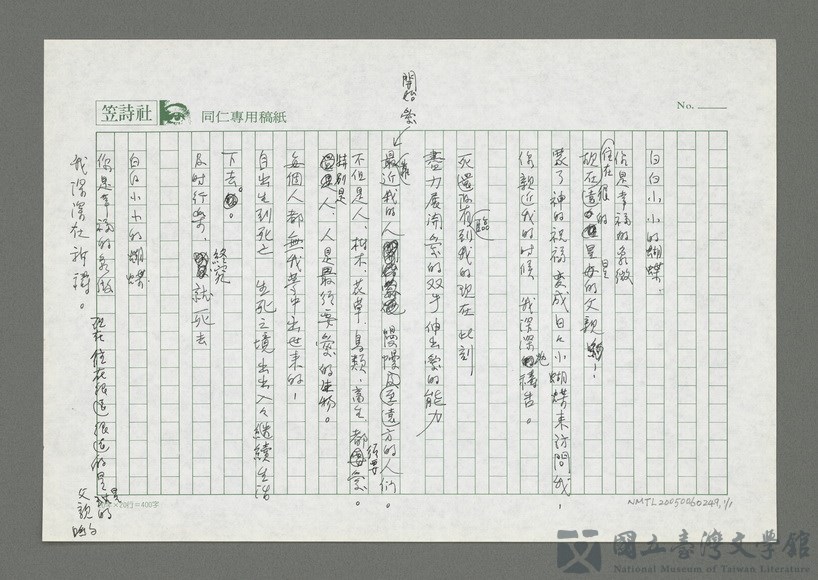 笠詩社
同仁專用稿紙
No.
白白小小的蝴蝶.
你是幸福的象徵
住在很
現在遠的星母的父親!
是
帶了神的祝福 變成白白小蝴蝶來訪問我,
你親近我的時候 我深深地禱告。
死還沒有到我的現在 此刻
臨
盡力展開愛的双手 伸出愛的能力
開始愛
最靠近我的人 慢慢愛至遠方的人們。
不但是人, 樹木. 花草. 鳥類. 畜生 都須要愛。
特別是人. 人是最須要愛的生物。
每個人都無我夢中出世來的!
自出生到死亡 生死之境出出入々繼續生活
下去。
及時行樂, 就死去
終究
白白小小的蝴蝶.
你是幸福的象徵
現在住在很遠很遠的星星的父親
我深深在祈禱。
20×20行=400字
NMTL20050060249,1/1
國立臺灣文學館
National Museum of Taiwan Literature